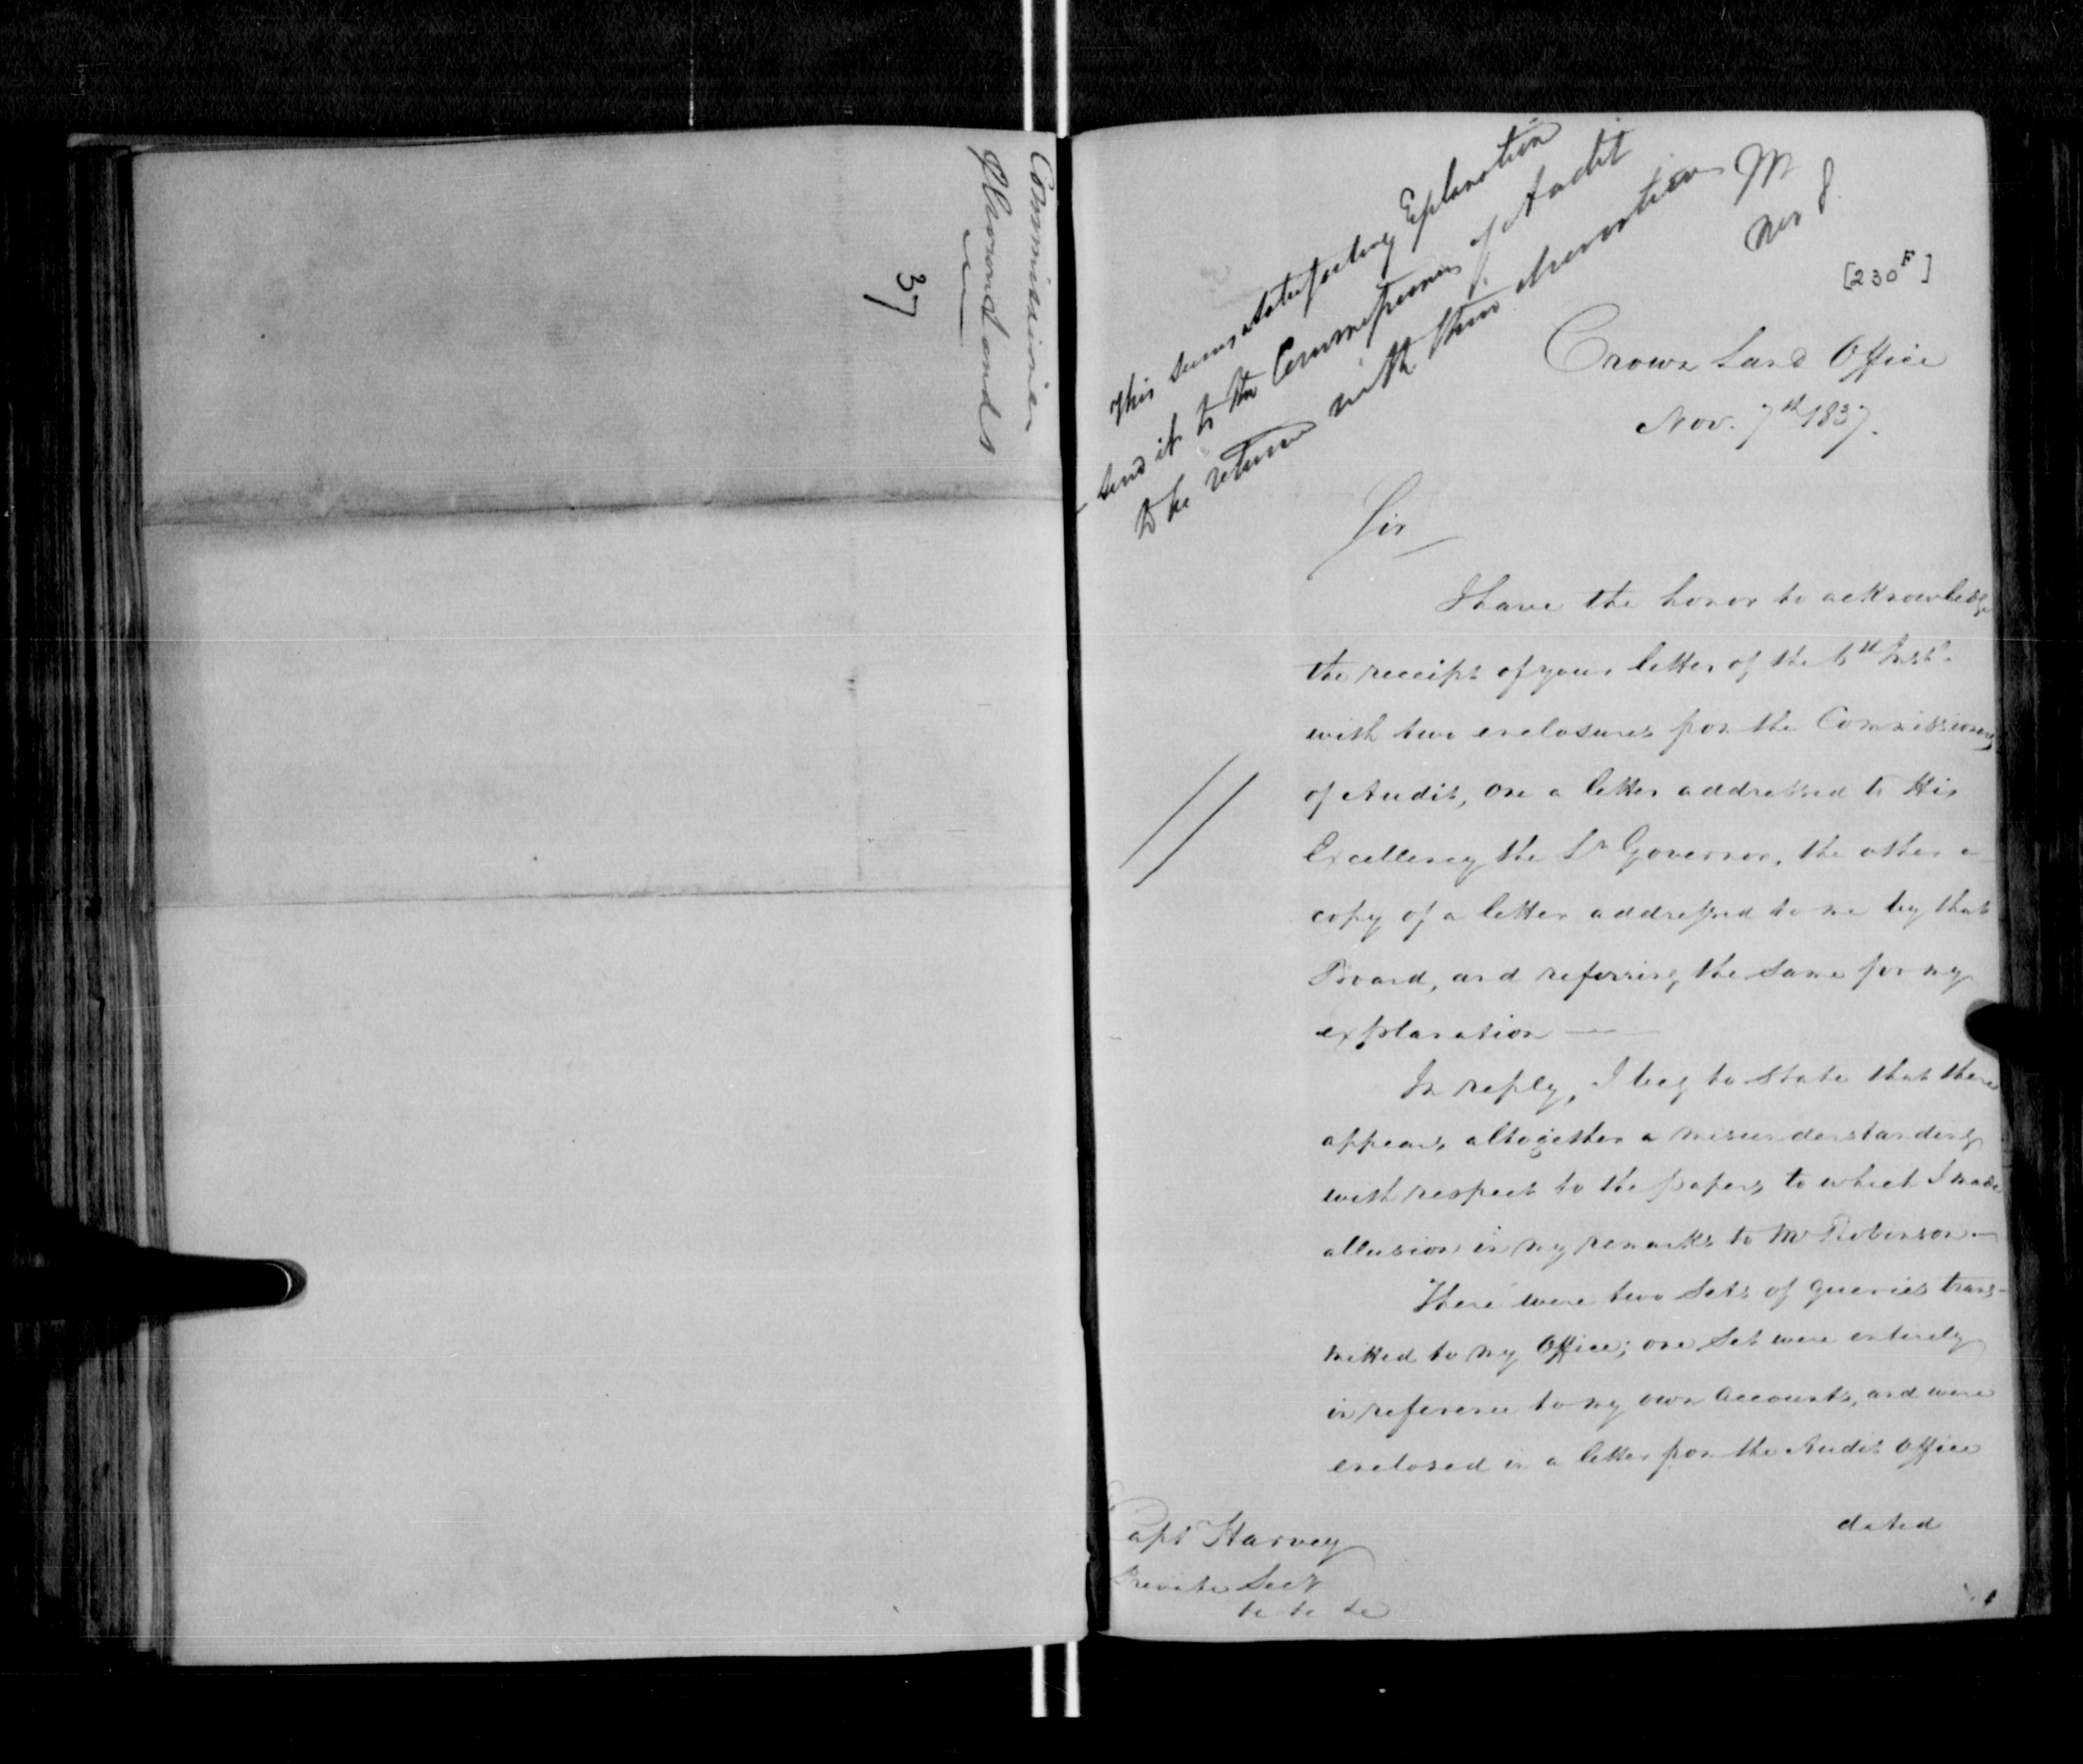 Commissioner
Crown Lands
37
This seems a satisfactory Explanation
send it to the Commissioners of Audit
to be returned with their observations
Nov 8
[230F]
Crown Land Office
Nov. 7th 1837.
Sir
I have the honor to acknowledge
the receipt of your letter of the 6th Inst.
with two enclosures from the Commissioners
of Audit, one a letter addressed to His
Excellency the Lt Governor, the other a
copy of a letter addressed to me by that
Board, and referring the same for my
explanation —
In reply, I beg to state that there
appears altogether a misunderstanding
with respect to the papers to which I made
allusion in my remarks to Mr Robinson —
There were two sets of queries trans-
mitted to my Office; one Set were entirely
in reference to my own accounts, and were
enclosed in a letter from the Audit Office
dated
Capt Harvey
Private Secy
&c &c &c